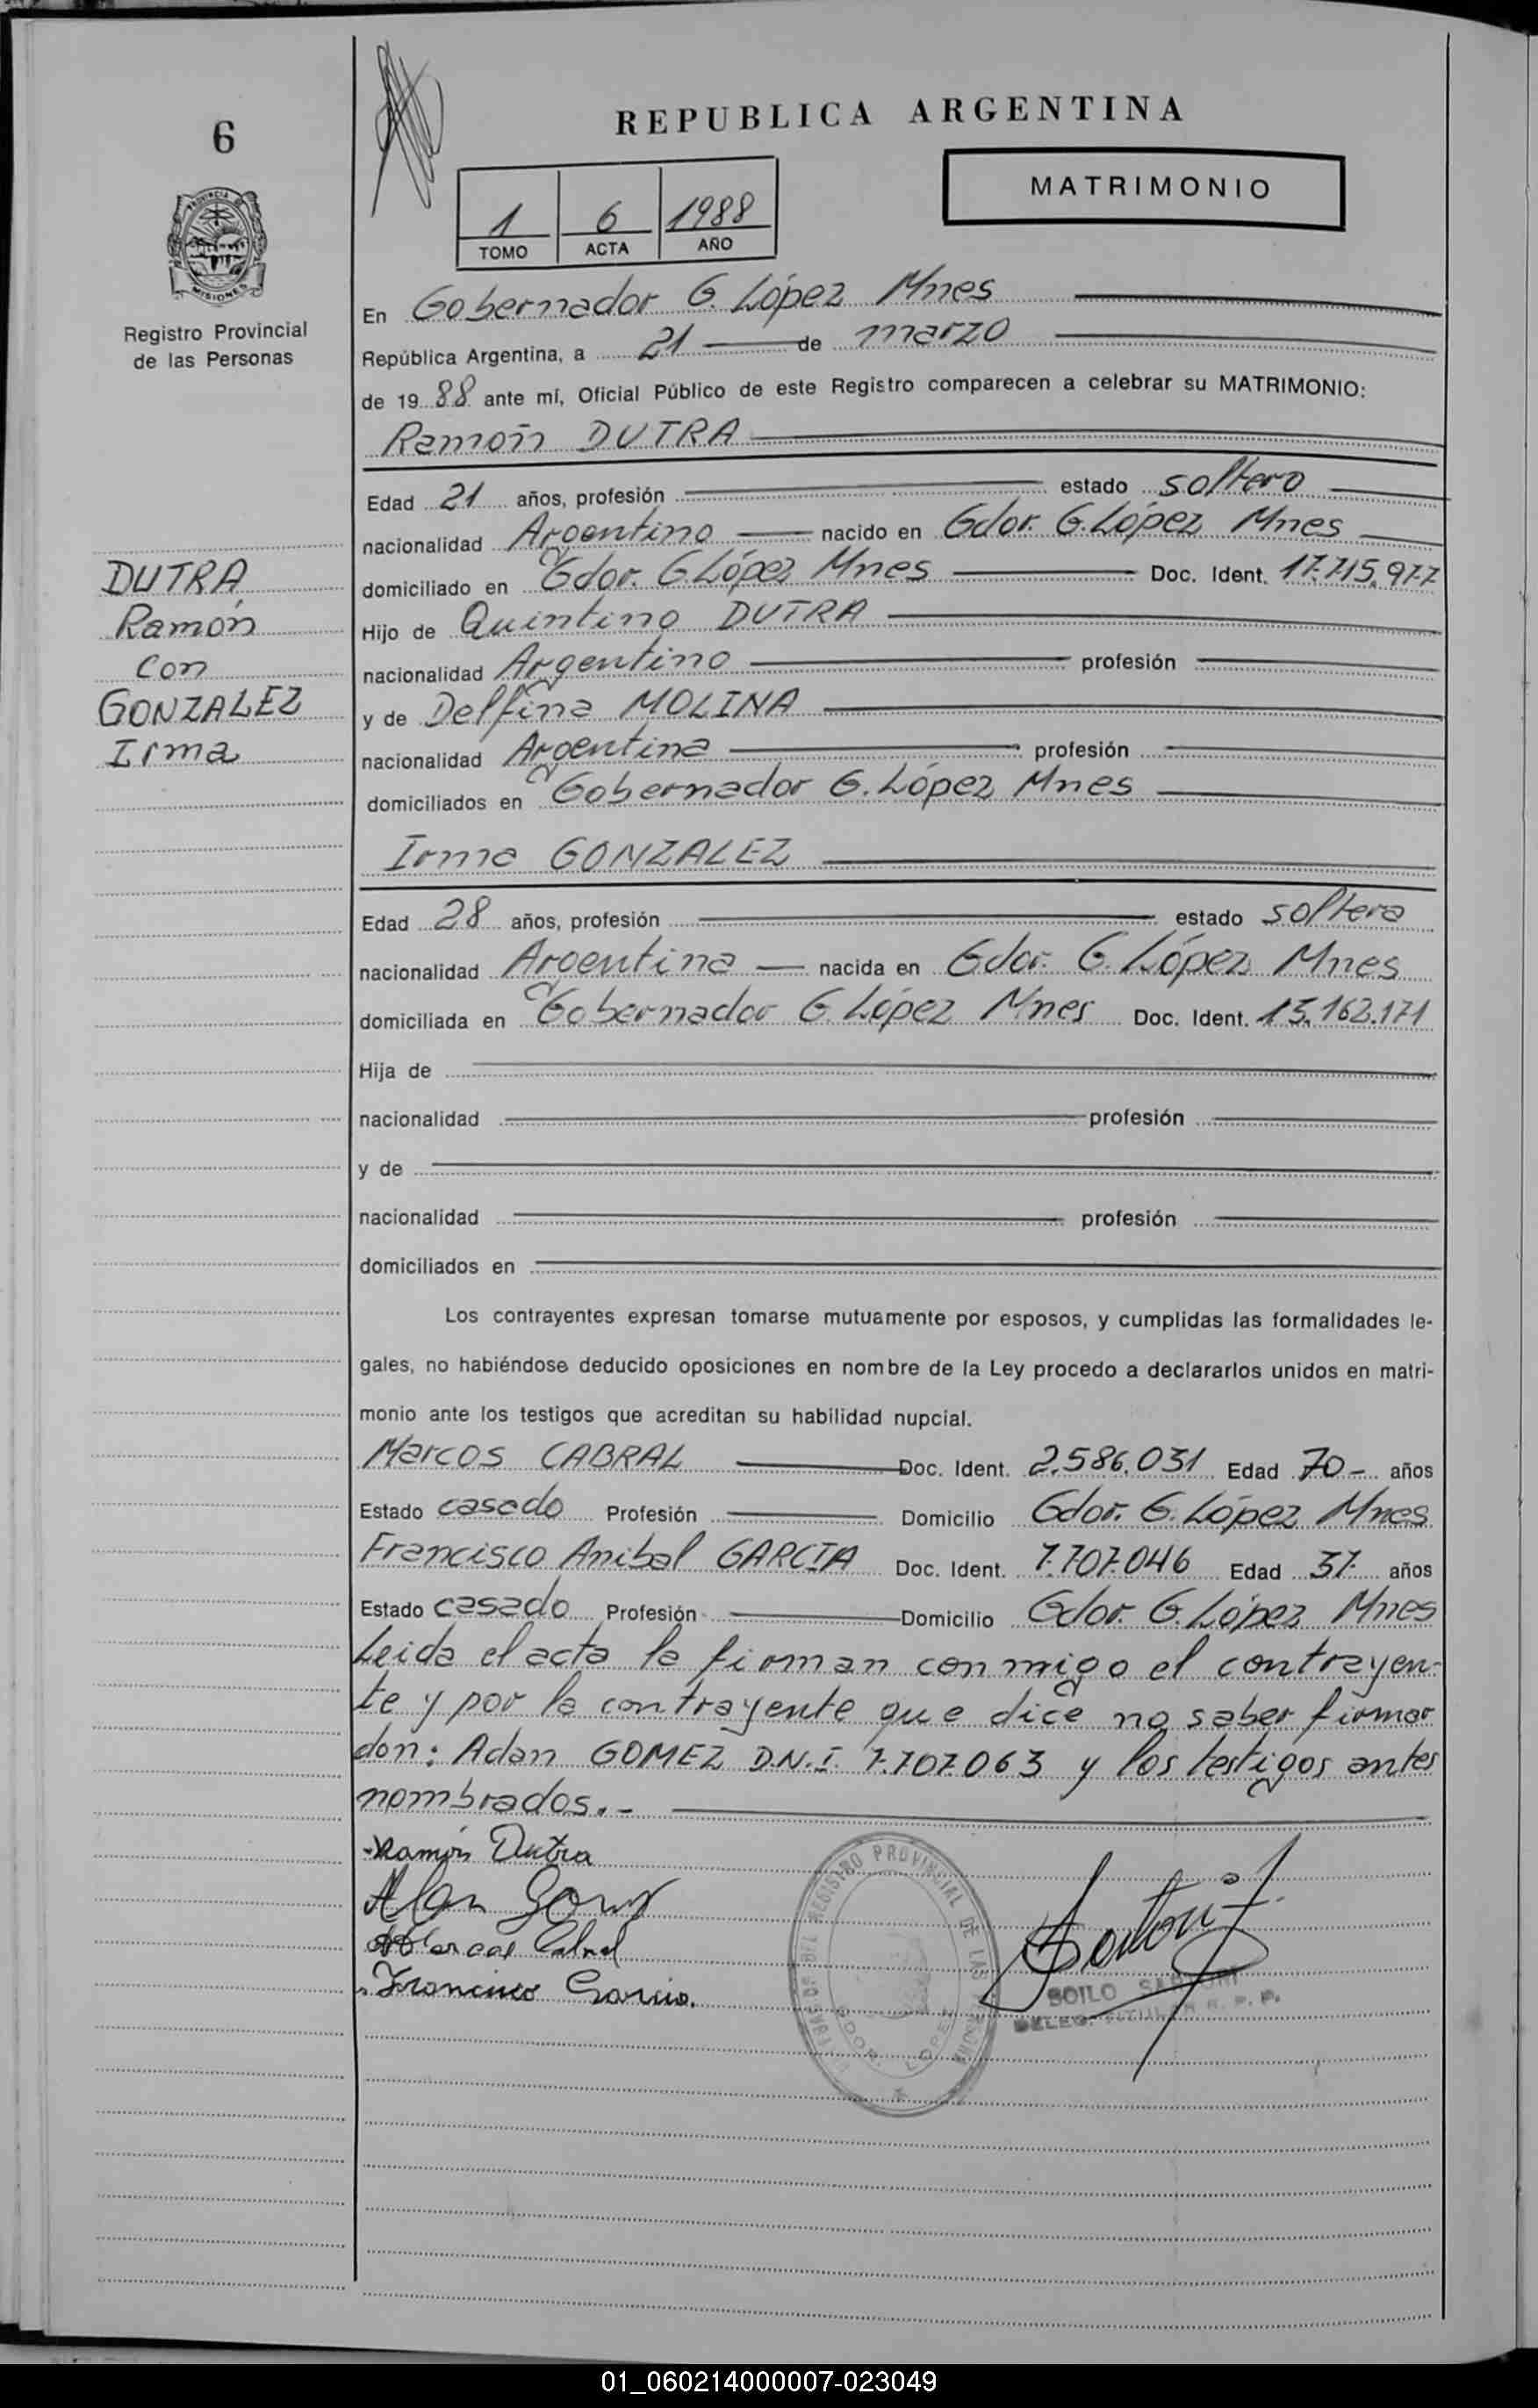 6
REPUBLICA ARGENTINA
MATRIMONIO
1 6 1988
TOMO ACTA AÑO
PROVINCIA DE
MISIONES
Registro Provincial
de las Personas
En Gobernador G. López Mnes
República Argentina, a 21 de marzo
de 19 88 ante mí, Oficial Público de este Registro comparecen a celebrar su MATRIMONIO:
Ramón DUTRA
Edad 21 años, profesión estado soltero
nacionalidad Argentino nacido en Gdor. G. López Mnes
domiciliado en Gdor. G. López Mnes Doc. Ident. 17.715.977
Hijo de Quintino DUTRA
nacionalidad Argentino profesión
y de Delfina MOLINA
nacionalidad Argentina profesión
domiciliados en Gobernador G. López Mnes
DUTRA
Ramón
con
GONZALEZ
Irma
Irma GONZALEZ
Edad 28 años, profesión estado soltera
nacionalidad Argentina nacida en Gdor. G. López Mnes
domiciliada en Gobernador G. López Mnes Doc. Ident. 13.162.171
Hija de
nacionalidad profesión
y de
nacionalidad profesión
domiciliados en
Los contrayentes expresan tomarse mutuamente por esposos, y cumplidas las formalidades le-
gales, no habiéndose deducido oposiciones en nombre de la Ley procedo a declararlos unidos en matri-
monio ante los testigos que acreditan su habilidad nupcial.
Marcos CABRAL Doc. Ident. 2.586.031 Edad 70- años
Estado casado Profesión Domicilio Gdor. G. López Mnes
Francisco Anibal GARCIA Doc. Ident. 7.707.046 Edad 37 años
Estado casado Profesión Domicilio Gdor. G. López Mnes
Leida el acta la firman conmigo el contrayen-
te y por la contrayente que dice no saber firmar
don: Adan GOMEZ D.N.I. 7.707.063 y los testigos antes
nombrados.-
Ramón Dutra
Marcos Cabral
Francisco Garcia.
DEL REGISTRO PROVINCIAL DE LAS
GDOR. LOPEZ
SOILO
DELEG. TITULAR R. P. P.
01_060214000007-023049